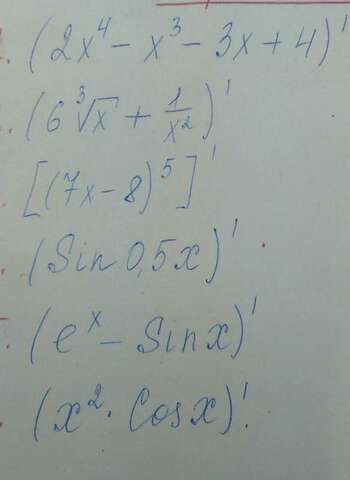 (2x⁴ - x³ - 3x + 4)'
(6∛x + 1/x²)'
[(7x - 8)⁵]'
(Sin 0,5x)'
(eˣ - Sin x)'
(x² · Cos x)'.